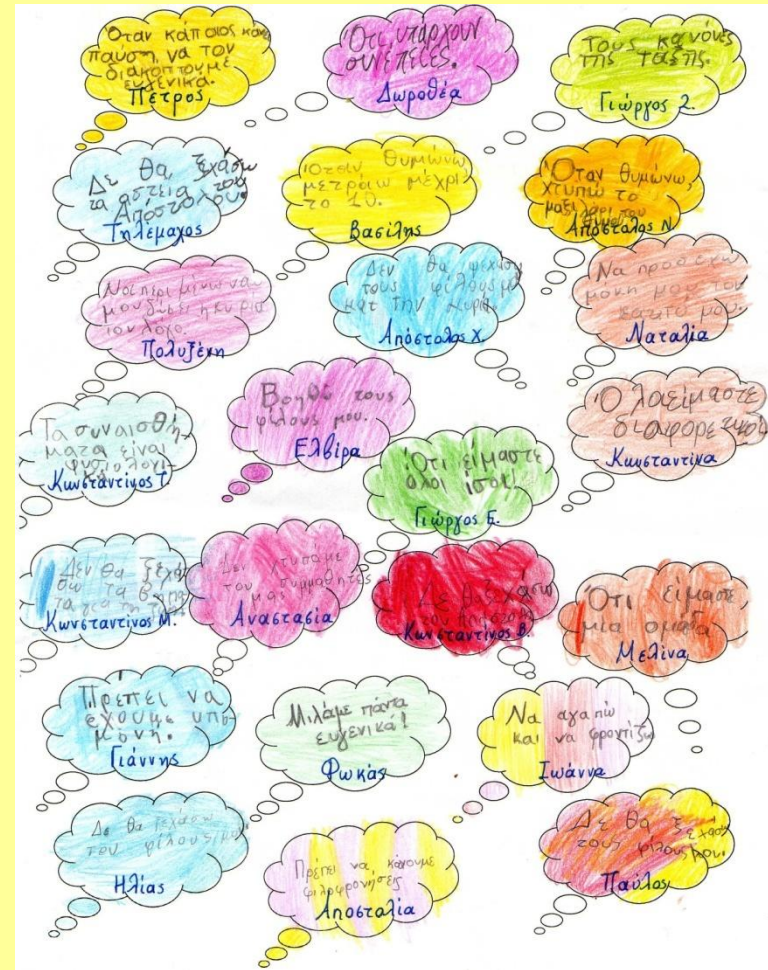 Όταν κάποιος κάνει
παύση, να τον
διακόπτουμε
ευγενικά.
Πέτρος
Ότι υπάρχουν
συνέπειες.
Δωροθέα
Τους κανόνες
της τάξης.
Γιώργος Ζ.
Δε θα ξεχάσω
τα αστεία του
Απόστολου.
Τηλέμαχος
Όταν θυμώνω
μετράω μέχρι
το 10.
Βασίλης
Όταν θυμώνω,
χτυπώ το
μαξιλάρι του
θυμού.
Απόστολος Ν.
Να περιμένω να
μου δώσει η κυρία
τον λόγο.
Πολυξένη
Δεν θα ψεχάσω
τους φίλους μου
και την κυρία.
Απόστολος Χ.
Να προσέχω
μόνη μου τον
εαυτό μου.
Ναταλία
Τα συναισθή-
ματα είναι
Κωνσταντίνος Τ.
Βοηθώ τους
φίλους μου.
Ελβίρα
Ότι είμαστε
όλοι ίσοι!
Γιώργος Ε.
Όλοι είμαστε
διαφορετικοί
Κωνσταντίνα
Δεν θα ξεχά
σω τα βήμα
τα για τη
Κωνσταντίνος Μ.
Δεν χτυπάμε
του συμμαθητές
μας
Αναστασία
Δε θα ξεχάσω
τον
Κωνσταντίνος Β.
Ότι είμαστε
μια ομάδα
Μελίνα
Πρέπει να
έχουμε υπο-
μονή.
Γιάννης
Μιλάμε πάντα
ευγενικά!
Φωκάς
Να αγαπώ
και να φροντίζω
Ιωάννα
Δε θα ξεχάσω
του φίλους μου.
Ηλίας
Πρέπει να κάνουμε
φιλοφρονήσεις
Αποσταλία
Δε θα ξεχάσω
τους φίλους μου.
Παύλος